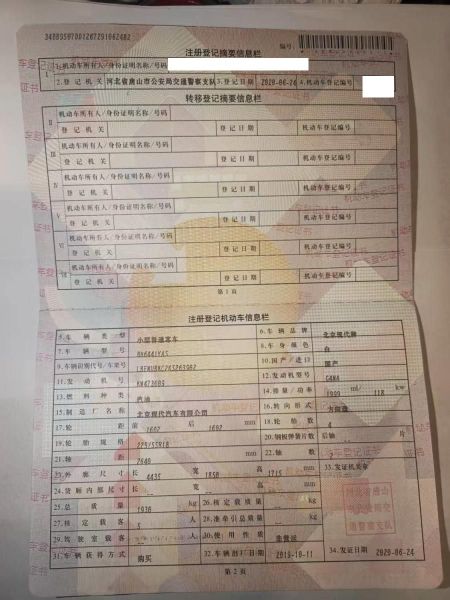 注册登记摘要信息栏
编号:
1.机动车所有人/身份证明名称/号码
2.登记机关 河北省唐山市公安局交通警察支队 3.登记日期 2020-06-24 4.机动车登记编号
转移登记摘要信息栏
II 机动车所有人/身份证明名称/号码
登记机关 登记日期 机动车登记编号
III 机动车所有人/身份证明名称/号码
登记机关 登记日期 机动车登记编号
IV 机动车所有人/身份证明名称/号码
登记机关 登记日期 机动车登记编号
V 机动车所有人/身份证明名称/号码
登记机关 登记日期 机动车登记编号
VI 机动车所有人/身份证明名称/号码
登记机关 登记日期 机动车登记编号
VII 机动车所有人/身份证明名称/号码
登记机关 登记日期 机动车登记编号
第1页
注册登记机动车信息栏
5.车辆类型 小型普通客车 6.车辆品牌 北京现代牌
7.车辆型号 8.车身颜色 白
9.车辆识别代号/车架号 10.国产/进口 国产
11.发动机号 12.发动机型号 G4NA
13.燃料种类 汽油 14.排量/功率 1999 ml/ 118 kw
15.制造厂名称 北京现代汽车有限公司 16.转向形式 方向盘
17.轮距 前 1602 后 1602 mm 18.轮胎数 4
19.轮胎规格 225/55R18 20.钢板弹簧片数 后轴 片
21.轴距 2640 mm 22.轴数 2
23.外廓尺寸 长 4435 宽 1850 高 1715 mm 33.发证机关章
24.货厢内部尺寸 长 宽 高 mm
25.总质量 1936 kg 26.核定载质量 kg
27.核定载客 5 人 28.准牵引总质量 kg
29.驾驶室载客 人 30.使用性质 非营运
31.车辆获得方式 购买 32.车辆出厂日期 2019-10-11 34.发证日期 2020-06-24
第2页